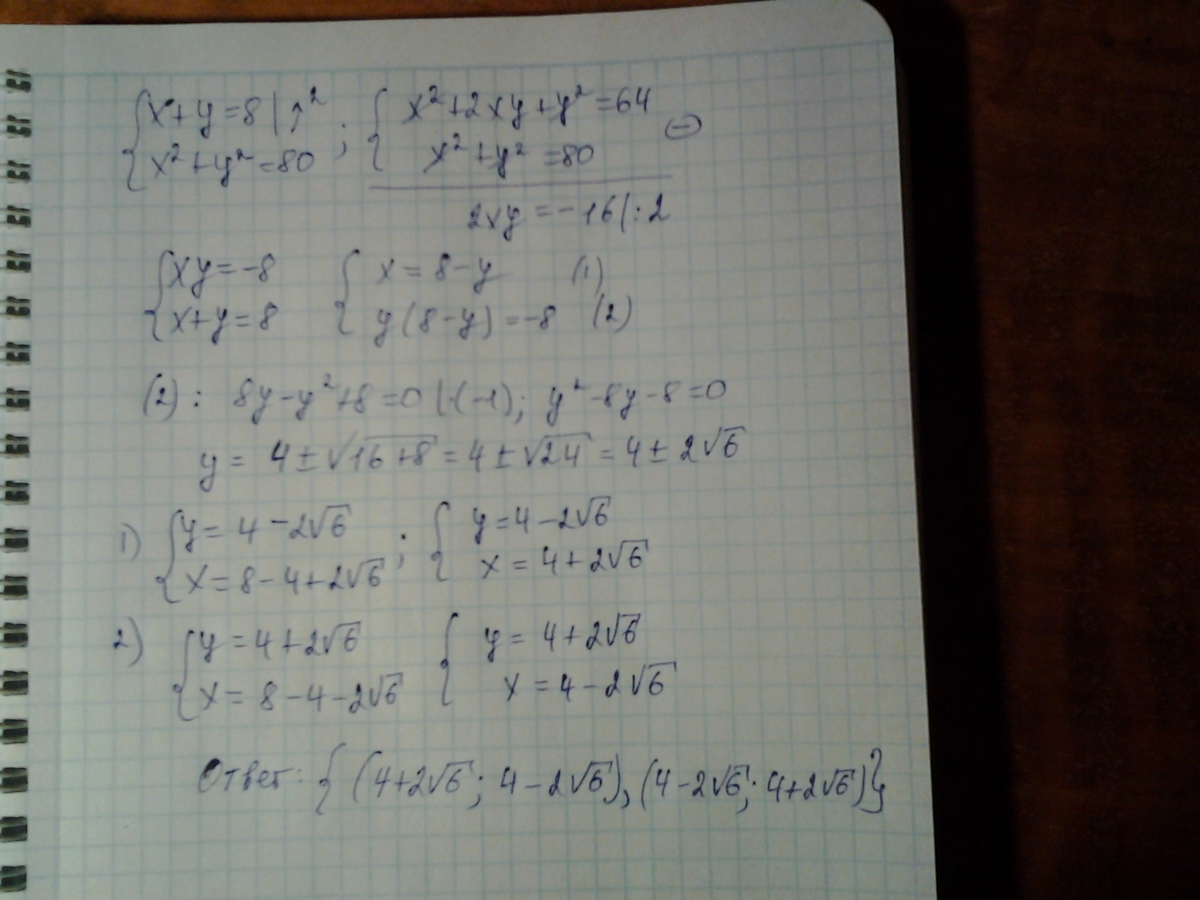 { x+y=8 | ↑²
x²+y²=80 ; { x²+2xy+y²=64
x²+y²=80 ⊖
2xy=-16 |:2
{ xy=-8
x+y=8 { x=8-y (1)
y(8-y)=-8 (2)
(2): 8y-y²+8=0 |·(-1); y²-8y-8=0
y= 4±√16+8 = 4±√24 = 4±2√6
1) { y=4-2√6
x=8-4+2√6 ; { y=4-2√6
x=4+2√6
2) { y=4+2√6
x=8-4-2√6 { y=4+2√6
x=4-2√6
Ответ: {(4+2√6; 4-2√6), (4-2√6; 4+2√6)}